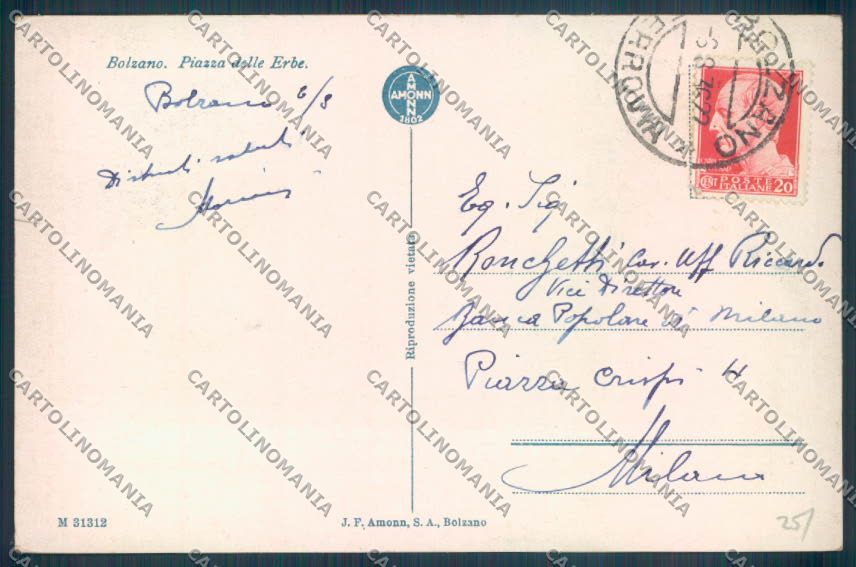 Bolzano. Piazza delle Erbe.
Bolzano 6/8
Distinti saluti
AMONN
AMONN
1802
Reproduzione vietata
BOLZANO
FERROVIA
POSTE
ITALIANE
CENT 20
Eg. Sig
Ronchetti Cav. Uff Riccardo
Vice Direttore
Banca Popolare di Milano
Piazza Crispi 4
Milano
M 31312
J. F. Amonn, S. A., Bolzano
25/
CARTOLINOMANIA